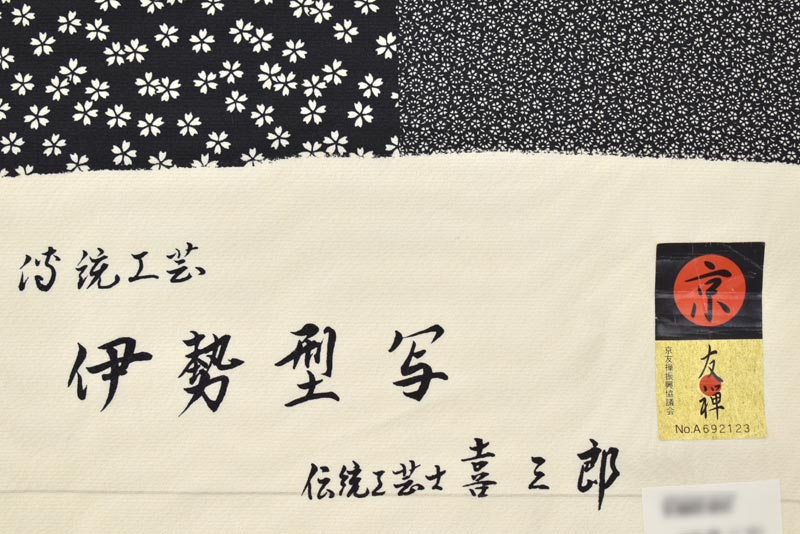 傳統工芸
伊勢型写
伝統工芸士 喜三郎
京
友禅
京友禅振興協議会
No.A692123